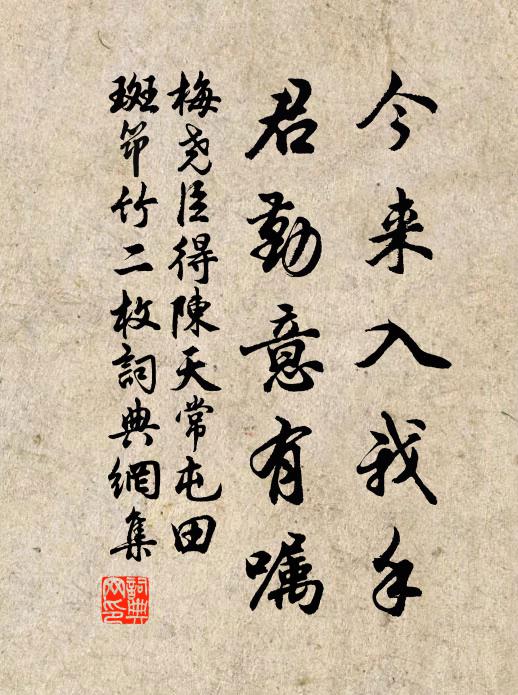 今来入我手
君勤意有嘱
梅尧臣得陳天常屯田
斑笻竹二枚詞典網集
詞典网印